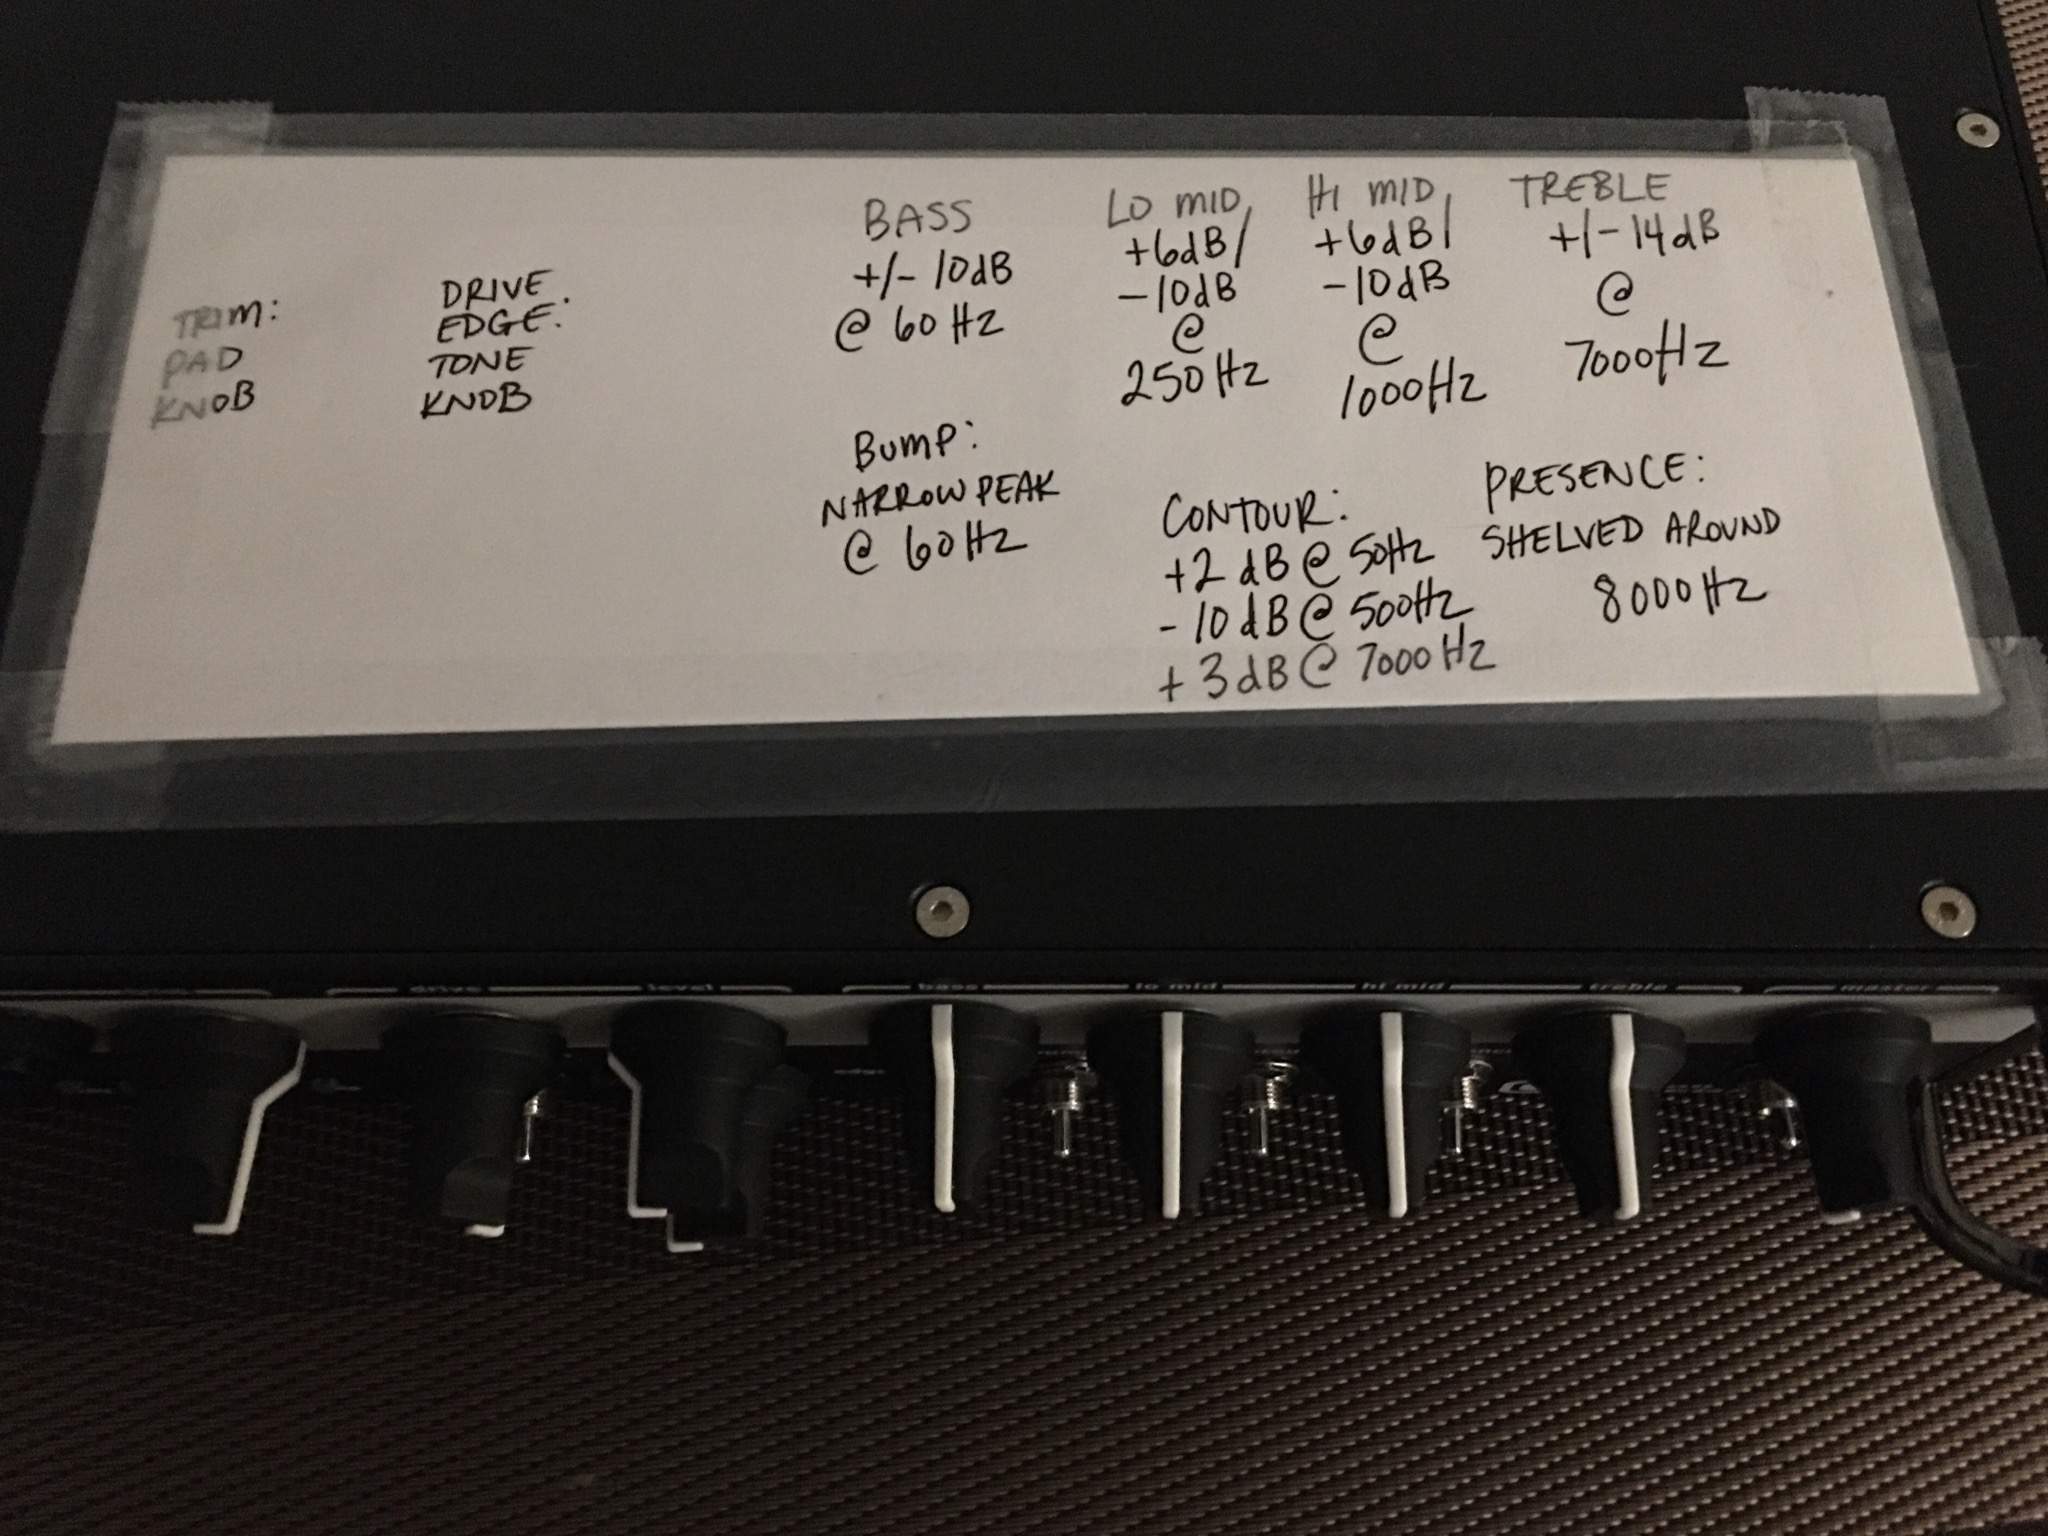 TRIM:
PAD
KNOB
DRIVE
EDGE:
TONE
KNOB
BASS
+/- 10dB
@ 60 Hz
LO MID
+6dB/
-10dB
@
250 Hz
HI MID
+6dB/
-10dB
@
1000Hz
TREBLE
+/-14dB
@
7000Hz
BUMP:
NARROW PEAK
@ 60Hz
CONTOUR:
+2 dB @ 50Hz
-10dB @ 500Hz
+3dB @ 7000 Hz
PRESENCE:
SHELVED AROUND
8000Hz
drive
level
bass
lo mid
hi mid
treble
master
edge